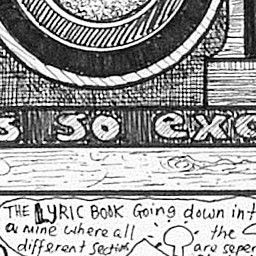 s so exc
THE LYRIC BOOK Going down int
a mine where all the
different sections are seper